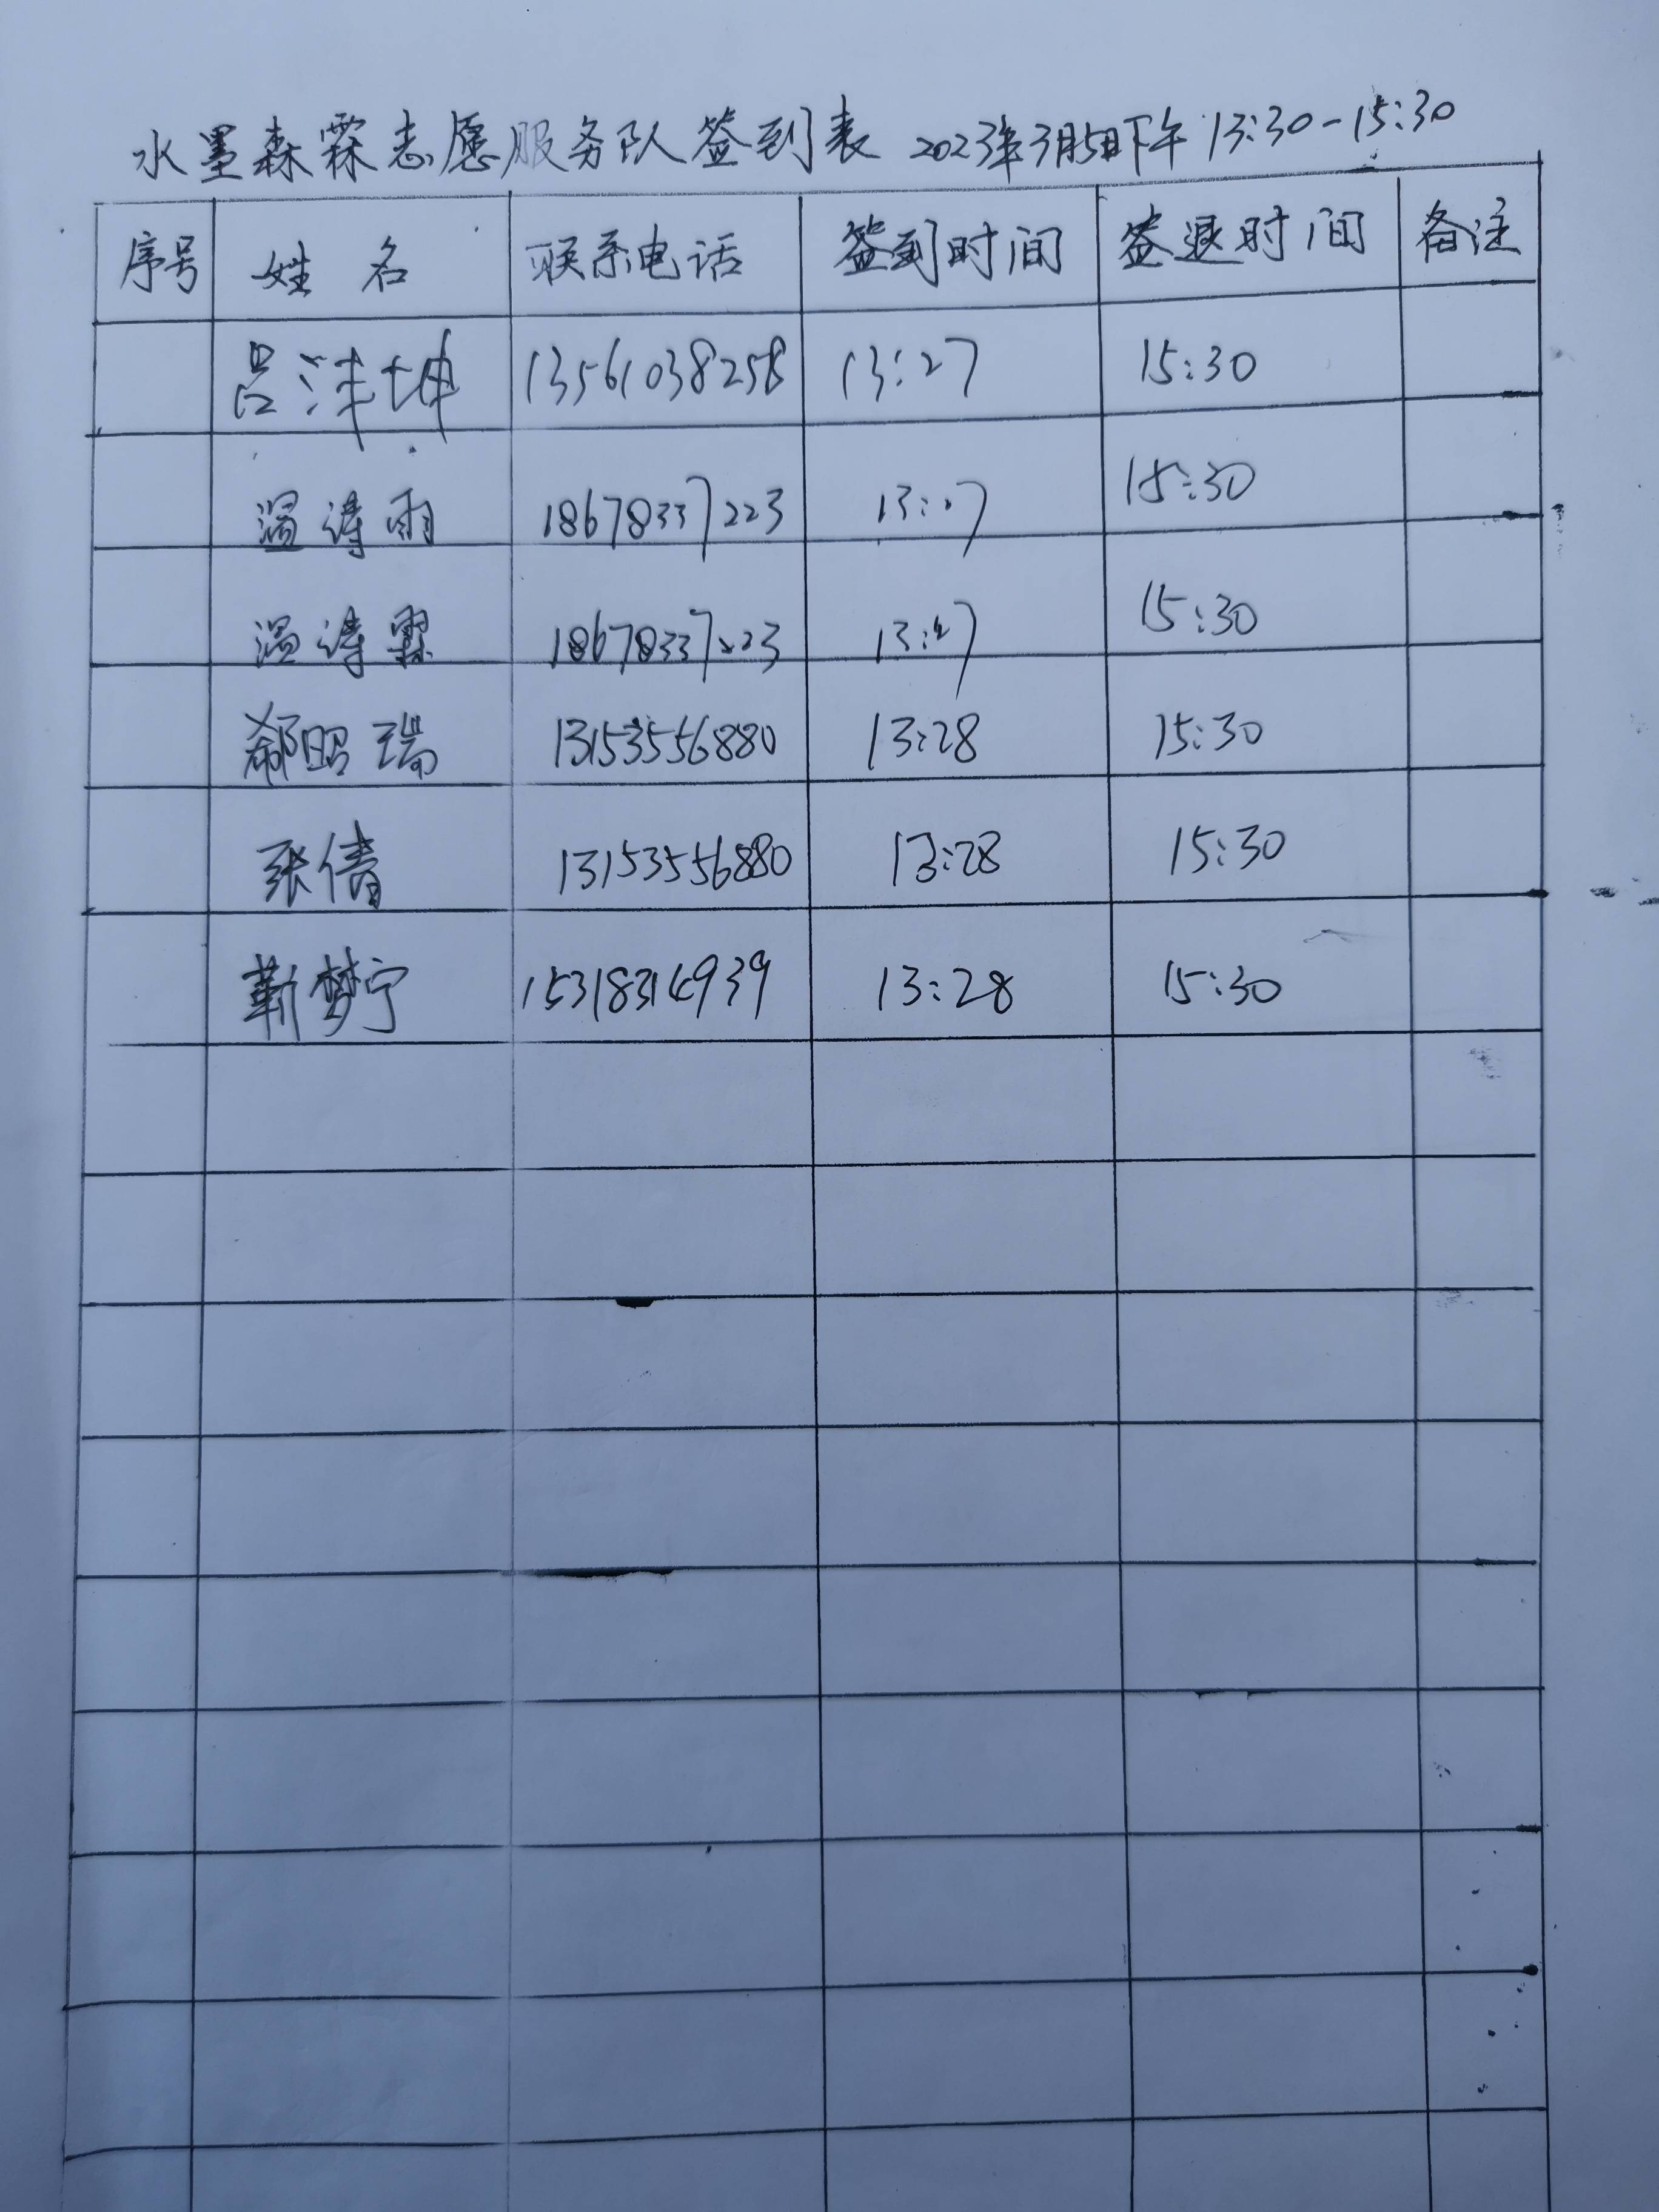 水墨森霖志愿服务队签到表 2023年3月5日下午 13:30-15:30
序号 姓名 联系电话 签到时间 签退时间 备注
吕沣坤 13561038258 13:27 15:30
温诗雨 18678337223 13:27 15:30
温诗霖 18678337223 13:27 15:30
郗昭瑞 13153556880 13:28 15:30
张倩 13153556880 13:28 15:30
靳梦宁 15318314939 13:28 15:30